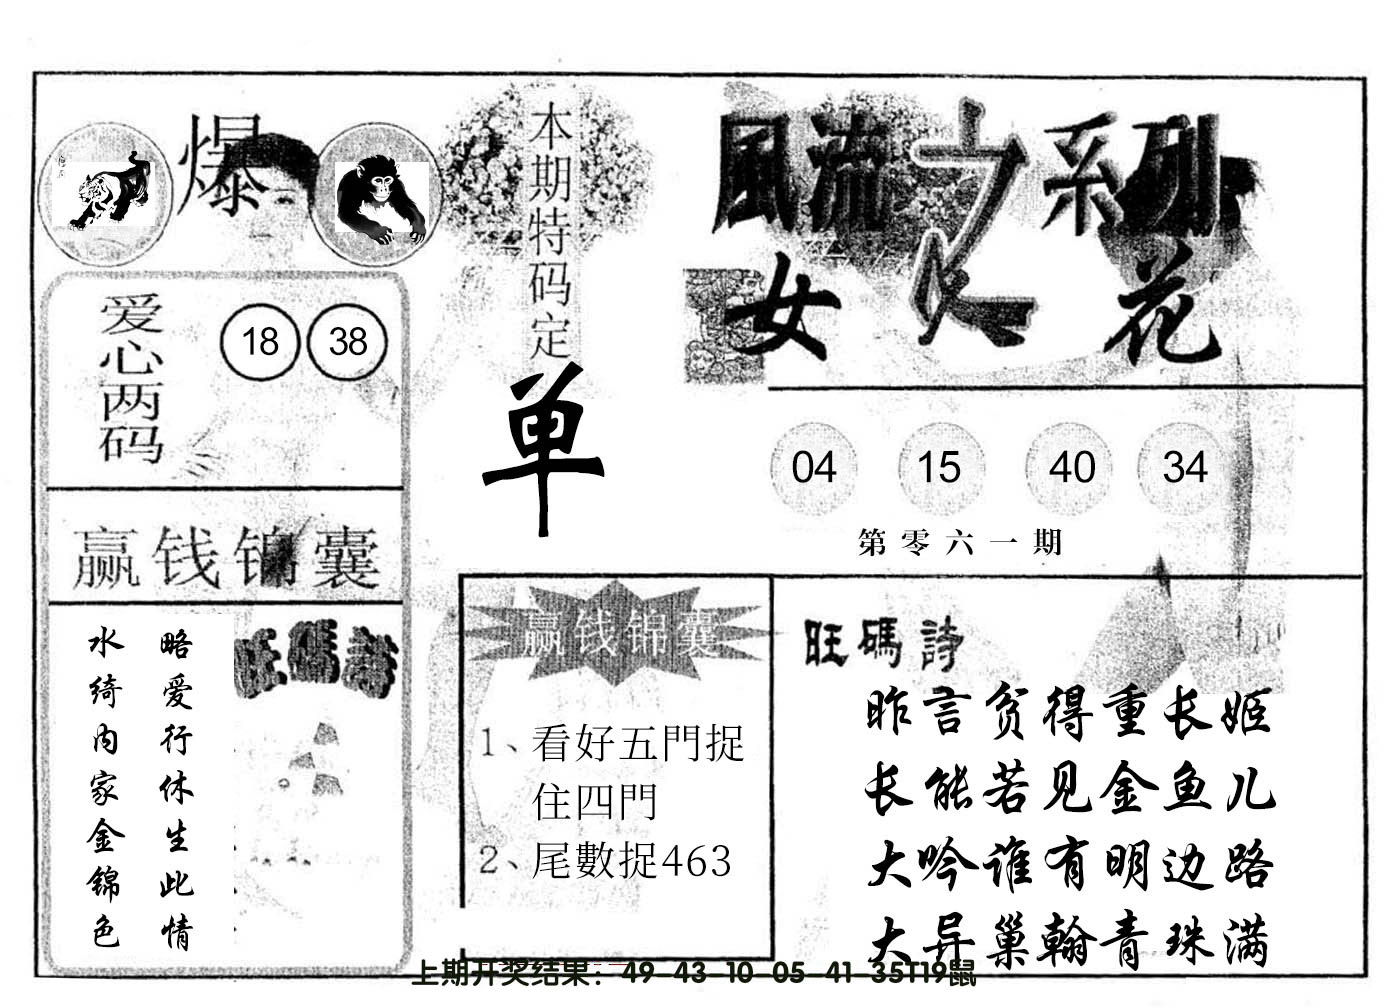 爆
本期特码定
单
風流之系列
女人花
爱心两码
18 38
04 15 40 34
第零六一期
赢钱锦囊
水绮内家金锦色
略爱行休生此情
旺碼詩
赢钱锦囊
1、看好五門捉
住四門
2、尾數捉463
旺碼詩
昨言贫得重长姬
长能若见金鱼儿
大吟谁有明边路
大异巢翰青珠满
上期开奖结果：49-43-10-05-41-35T19鼠